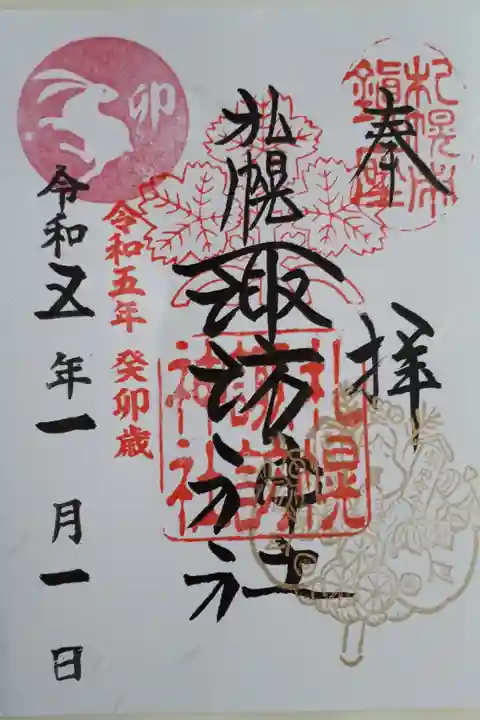 奉拝
札幌市鎮座
札幌諏訪神社
札幌諏訪神社
卯
令和五年 癸卯歳
令和五年一月一日